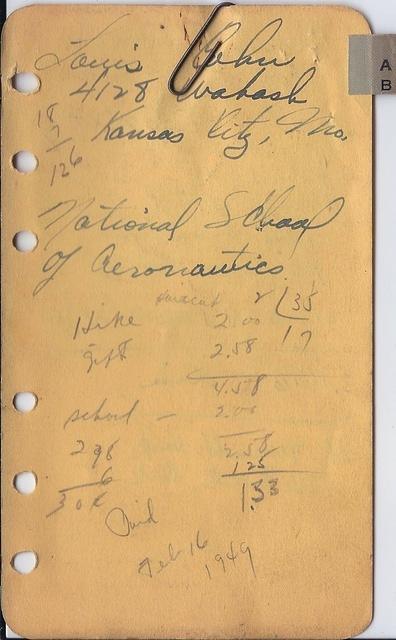 Louis Hohn
4128 Wabash
Kansas City, Mo.
18
7
126
A
B
National School
of Aeronautics
2 35
17
Hike 2.00
gift 2.58
4.58
school - 2.00
2.58
1.25
1.33
298
6
304
Paid
Feb 16
1949